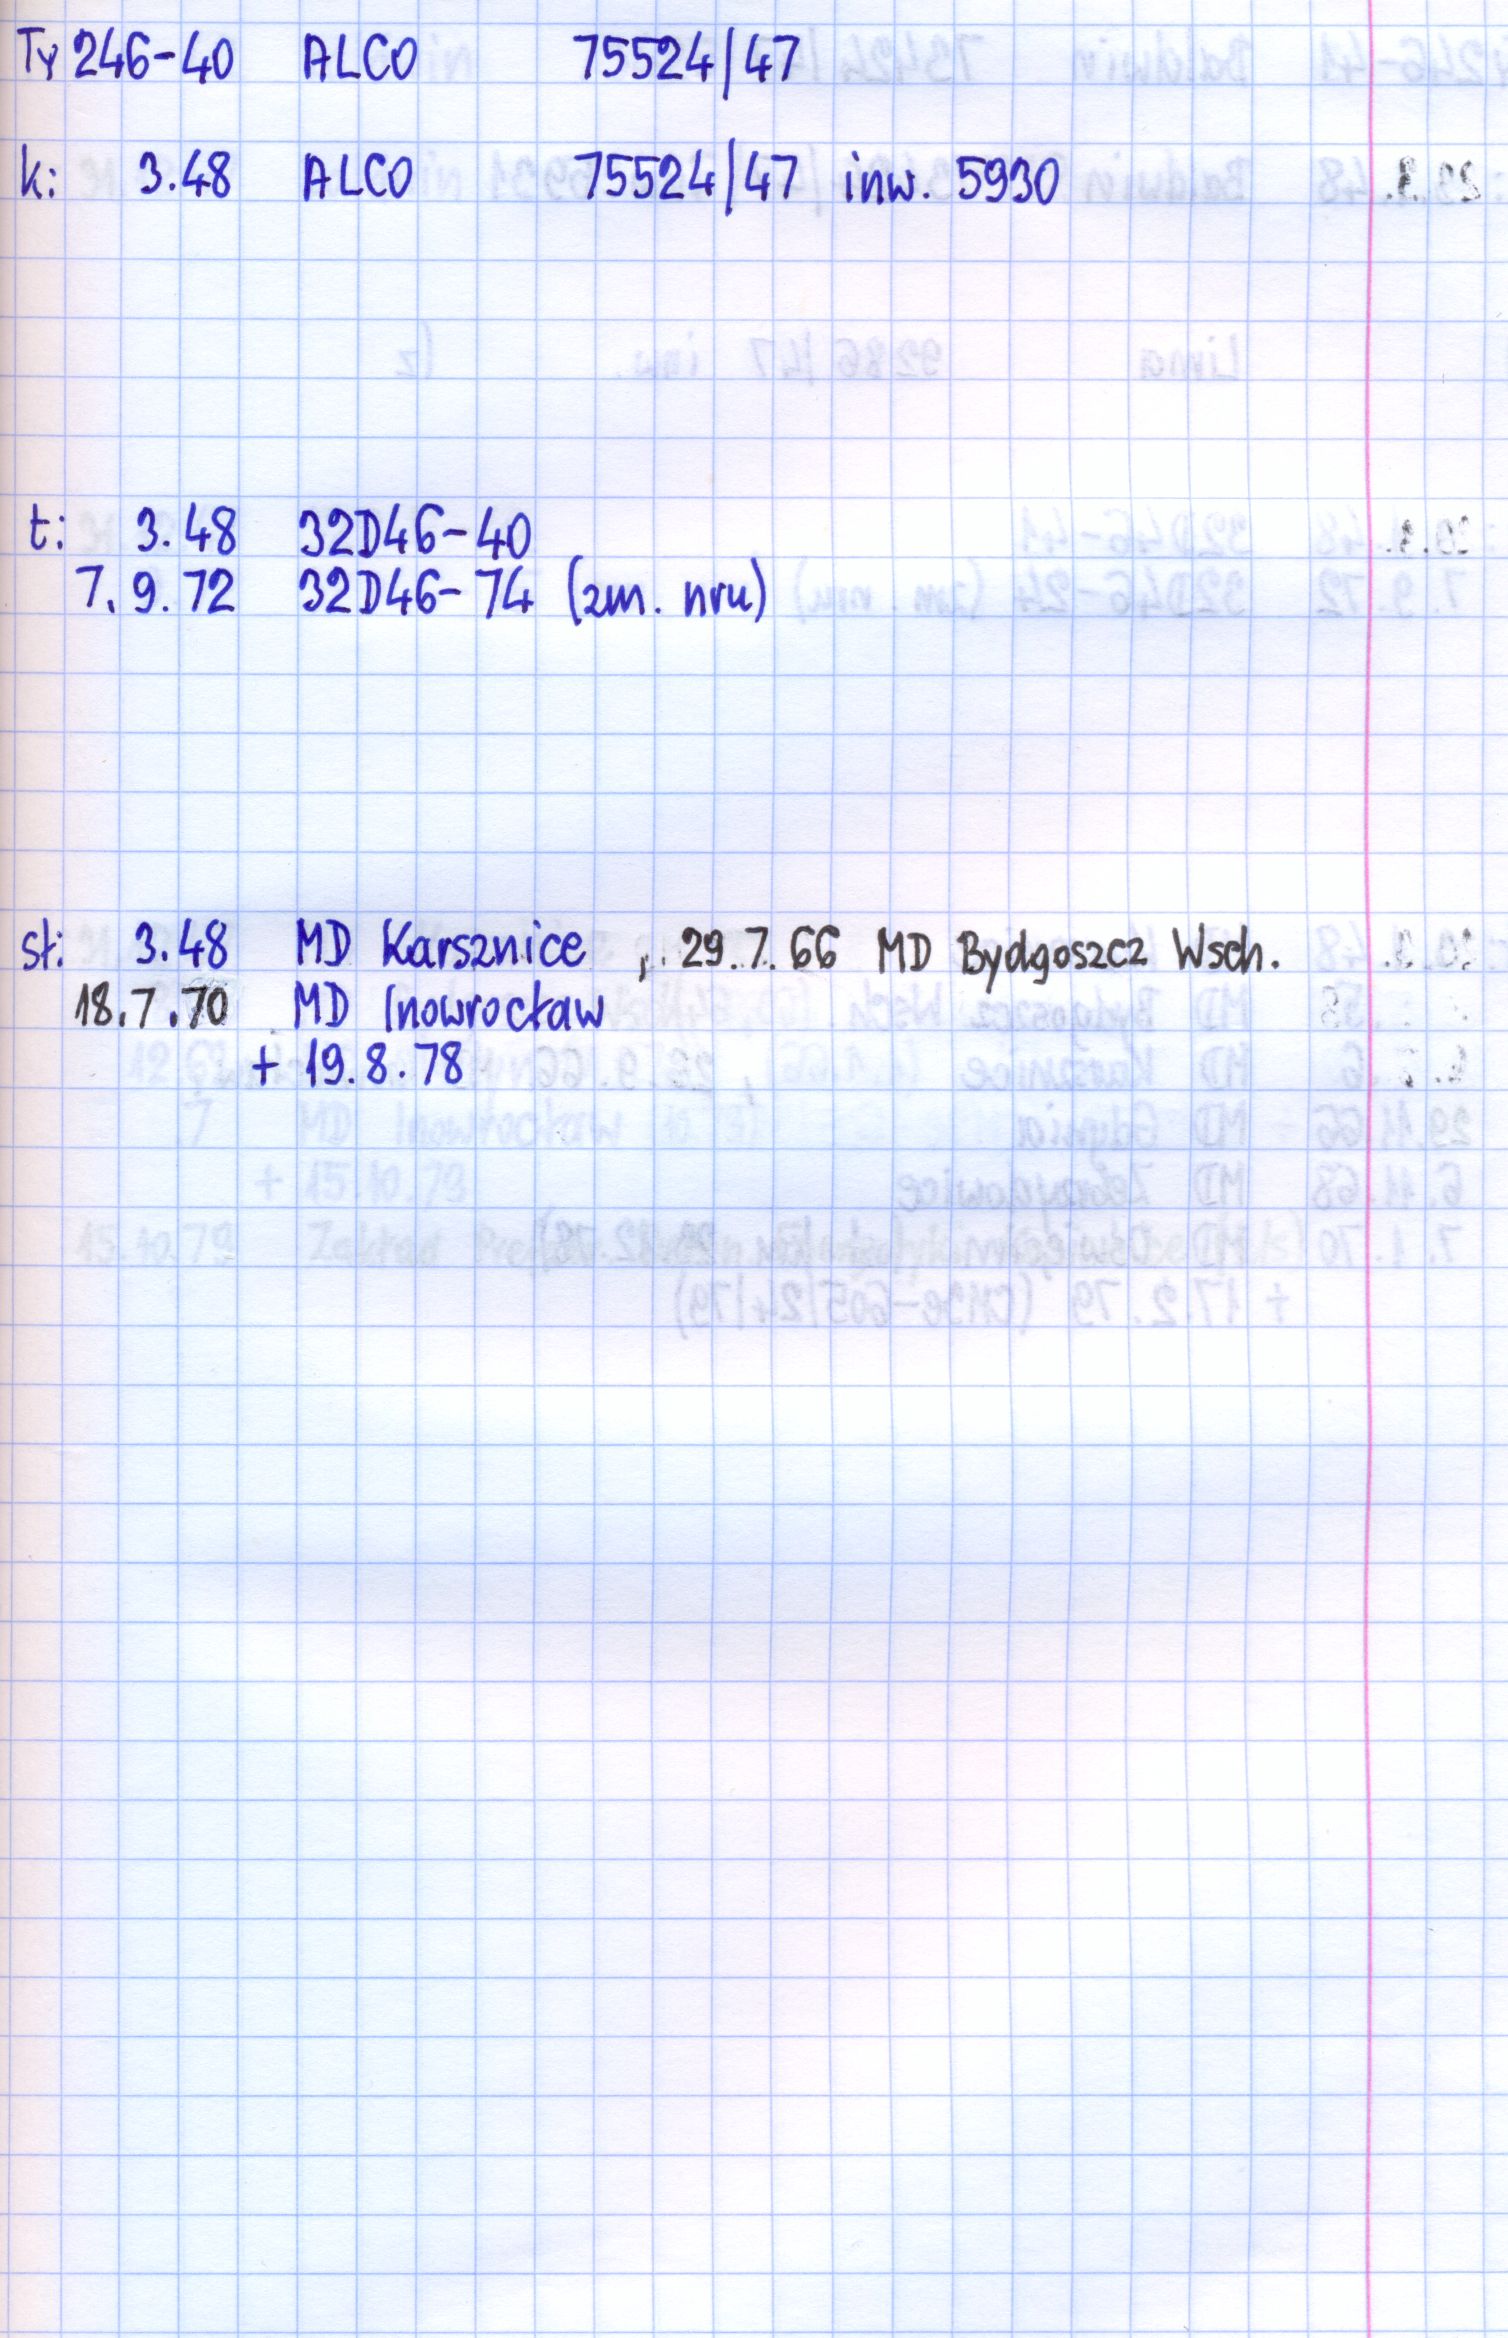 Ty246-40 ALCO 75524/47
k: 3.48 ALCO 75524/47 inw. 5930
t: 3.48 32D46-40
7.9.72 32D46-74 (zm. nru)
st: 3.48 MD Karsznice, 29.7.66 MD Bydgoszcz Wsch.
18.7.70 MD Inowrocław
+ 19.8.78